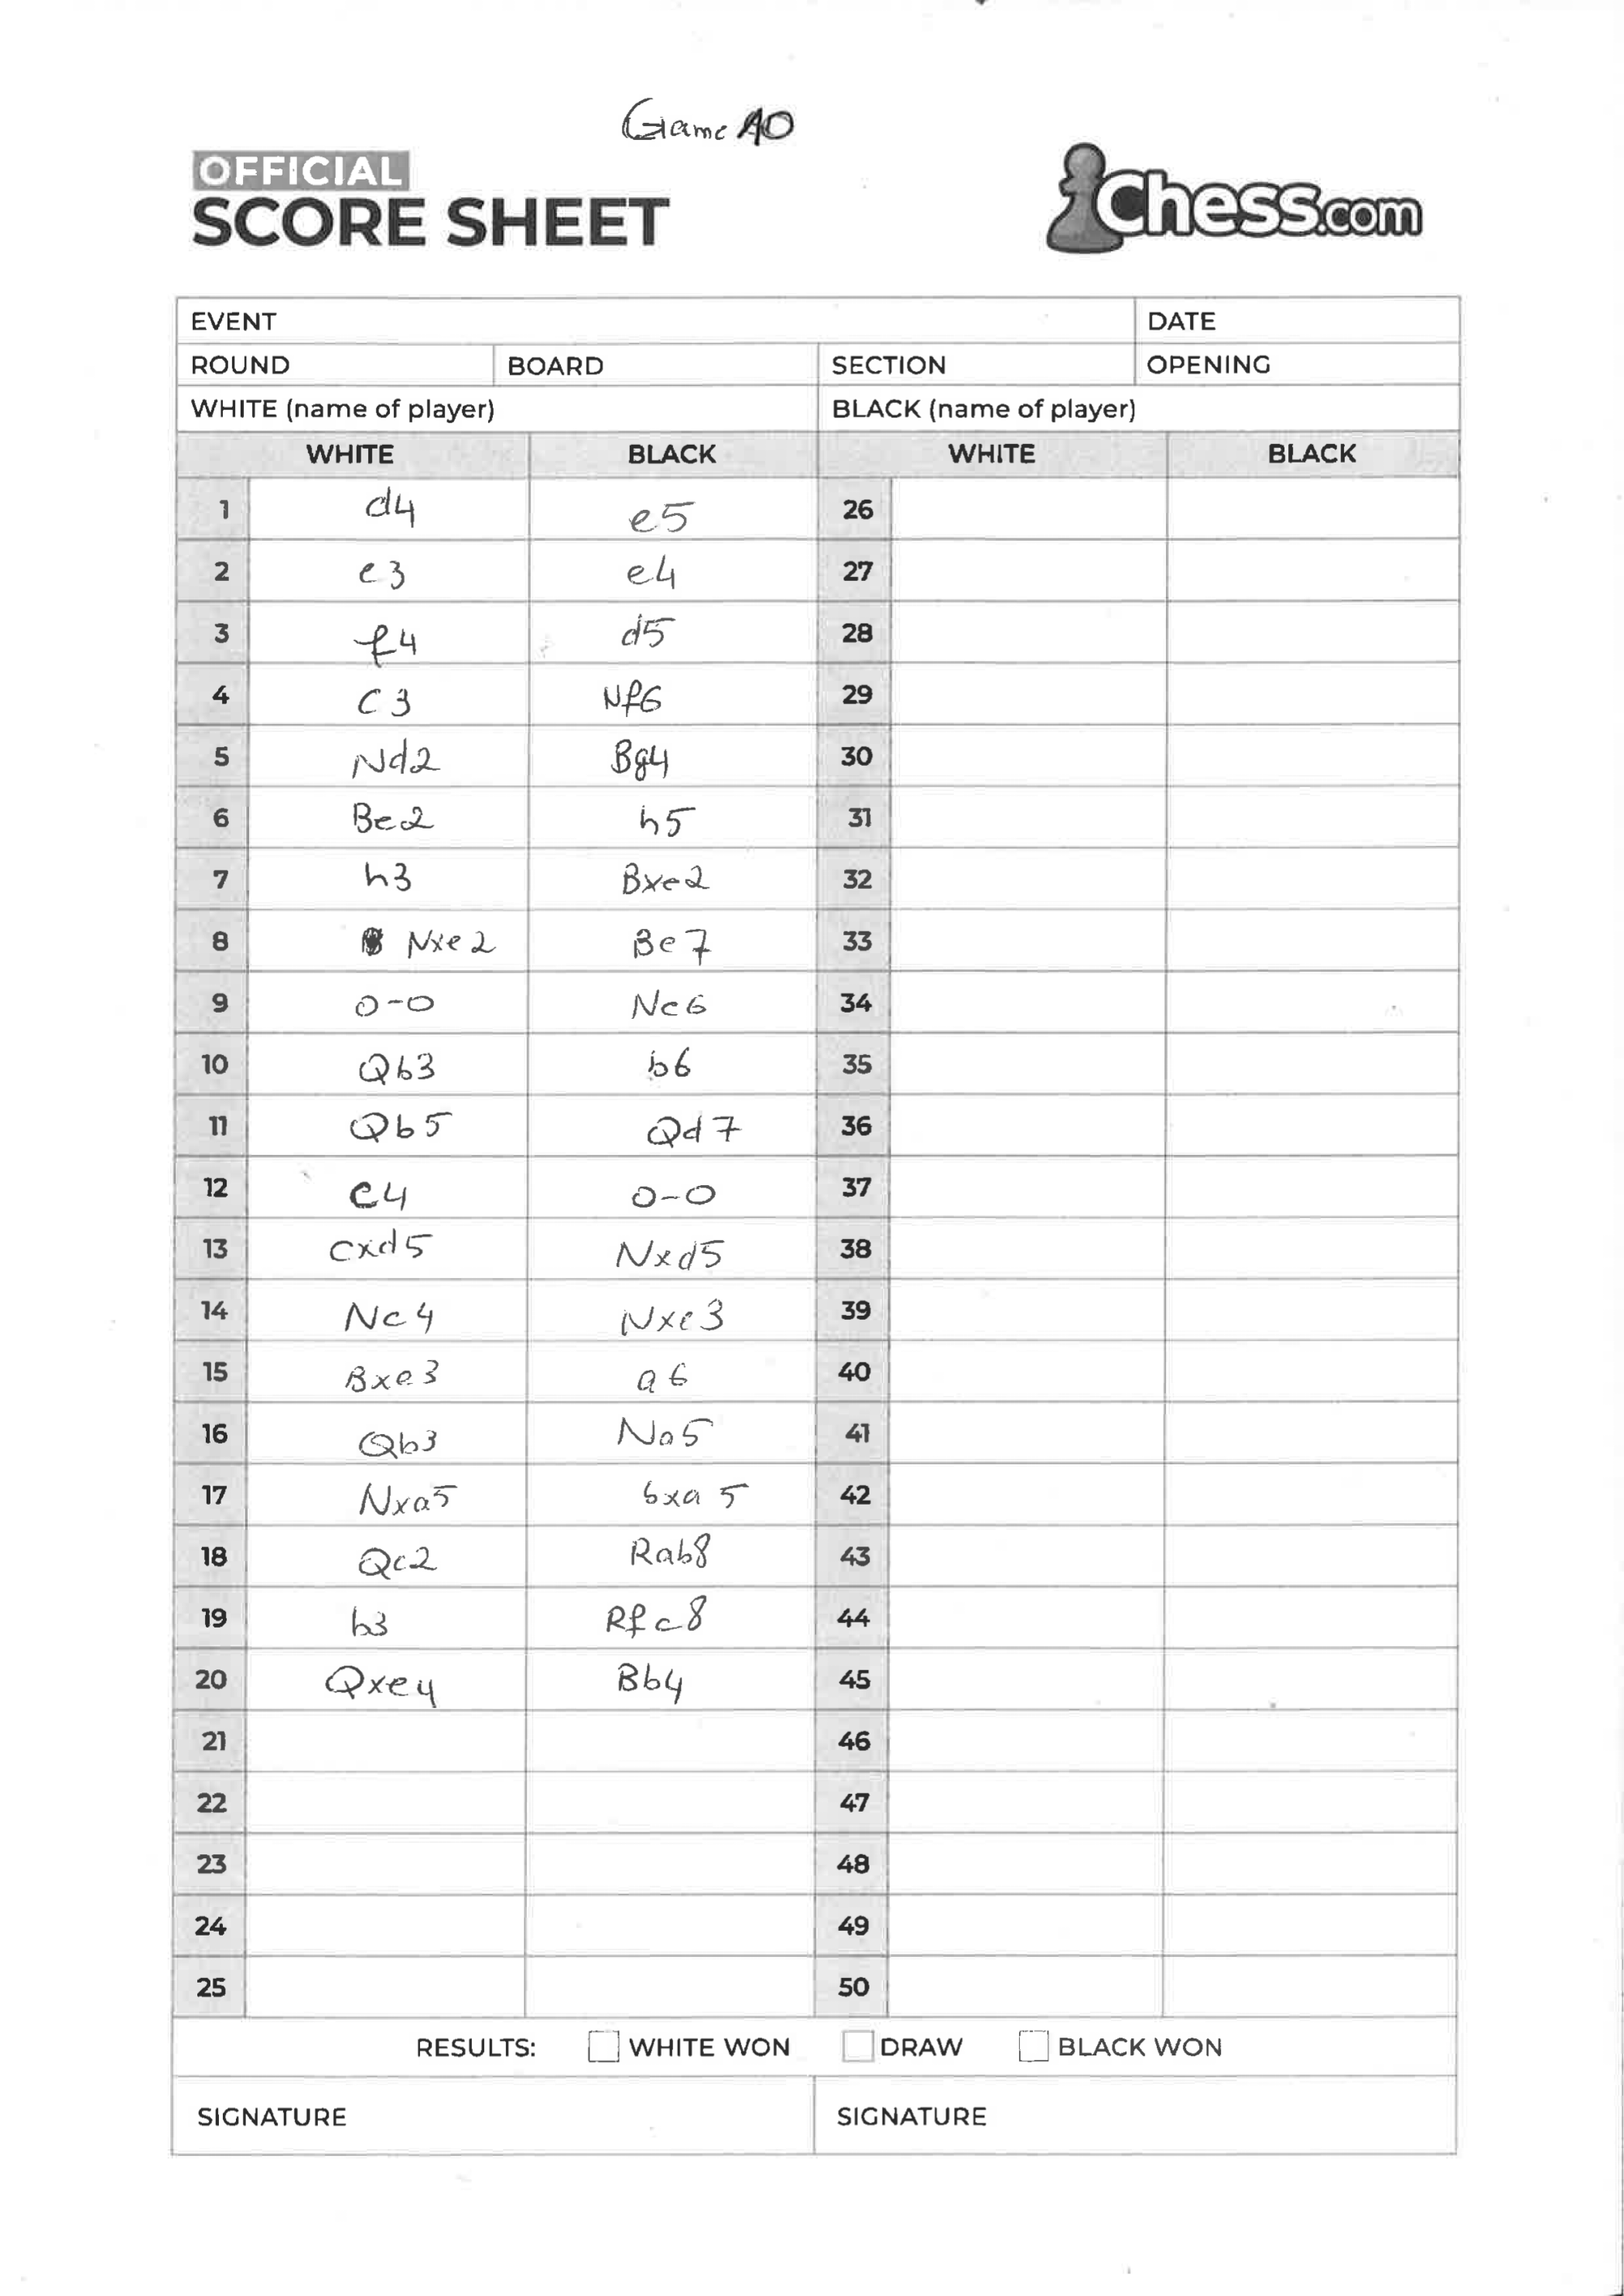 Game 10
OFFICIAL
SCORE SHEET
Chess.com
EVENT DATE
ROUND BOARD SECTION OPENING
WHITE (name of player) BLACK (name of player)
WHITE BLACK WHITE BLACK
1 d4 e5 26
2 e3 e4 27
3 f4 d5 28
4 c3 Nf6 29
5 Nd2 Bg4 30
6 Be2 h5 31
7 h3 Bxe2 32
8 Nxe2 Be7 33
9 0-0 Nc6 34
10 Qb3 b6 35
11 Qb5 Qd7 36
12 c4 0-0 37
13 cxd5 Nxd5 38
14 Nc4 Nxe3 39
15 Bxe3 a6 40
16 Qb3 Na5 41
17 Nxa5 bxa5 42
18 Qc2 Rab8 43
19 b3 Rfc8 44
20 Qxe4 Bb4 45
21 46
22 47
23 48
24 49
25 50
RESULTS: WHITE WON DRAW BLACK WON
SIGNATURE SIGNATURE